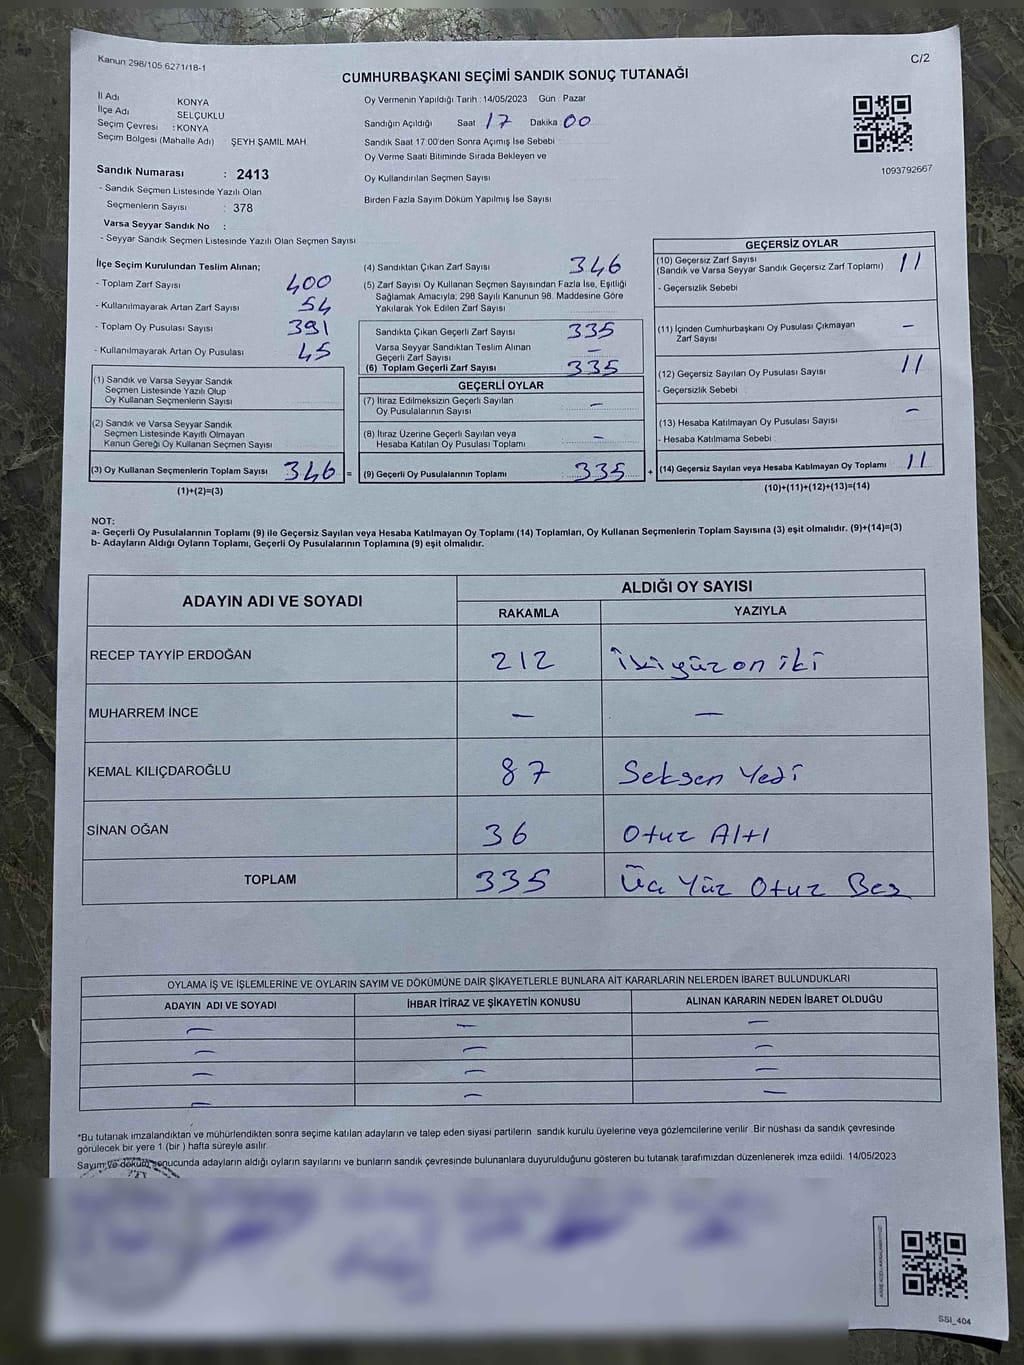 Kanun 298/105 6271/18-1
C/2
CUMHURBAŞKANI SEÇİMİ SANDIK SONUÇ TUTANAĞI
İl Adı KONYA
İlçe Adı SELÇUKLU
Seçim Çevresi : KONYA
Seçim Bölgesi (Mahalle Adı) ŞEYH ŞAMİL MAH
Oy Vermenin Yapıldığı Tarih : 14/05/2023 Gün : Pazar
Sandığın Açıldığı Saat 17 Dakika 00
Sandık Saat 17.00'den Sonra Açımış İse Sebebi
Oy Verme Saati Bitiminde Sırada Bekleyen ve
Oy Kullandırılan Seçmen Sayısı
Birden Fazla Sayım Döküm Yapılmış İse Sayısı
1093792667
Sandık Numarası : 2413
- Sandık Seçmen Listesinde Yazılı Olan
Seçmenlerin Sayısı : 378
Varsa Seyyar Sandık No :
- Seyyar Sandık Seçmen Listesinde Yazılı Olan Seçmen Sayısı
İlçe Seçim Kurulundan Teslim Alınan;
- Toplam Zarf Sayısı 400
- Kullanılmayarak Artan Zarf Sayısı 54
- Toplam Oy Pusulası Sayısı 391
- Kullanılmayarak Artan Oy Pusulası 45
(1) Sandık ve Varsa Seyyar Sandık
Seçmen Listesinde Yazılı Olup
Oy Kullanan Seçmenlerin Sayısı
(2) Sandık ve Varsa Seyyar Sandık
Seçmen Listesinde Kayıtlı Olmayan
Kanun Gereği Oy Kullanan Seçmen Sayısı
(3) Oy Kullanan Seçmenlerin Toplam Sayısı 346 =
(1)+(2)=(3)
(4) Sandıktan Çıkan Zarf Sayısı 346
(5) Zarf Sayısı Oy Kullanan Seçmen Sayısından Fazla İse, Eşitliği
Sağlamak Amacıyla; 298 Sayılı Kanunun 98. Maddesine Göre
Yakılarak Yok Edilen Zarf Sayısı
Sandıkta Çıkan Geçerli Zarf Sayısı 335
Varsa Seyyar Sandıktan Teslim Alınan
Geçerli Zarf Sayısı —
(6) Toplam Geçerli Zarf Sayısı 335
GEÇERLİ OYLAR
(7) İtiraz Edilmeksizin Geçerli Sayılan
Oy Pusulalarının Sayısı —
(8) İtiraz Üzerine Geçerli Sayılan veya
Hesaba Katılan Oy Pusulası Toplamı —
(9) Geçerli Oy Pusulalarının Toplamı 335 +
GEÇERSİZ OYLAR
(10) Geçersiz Zarf Sayısı 11
(Sandık ve Varsa Seyyar Sandık Geçersiz Zarf Toplamı)
- Geçersizlik Sebebi
(11) İçinden Cumhurbaşkanı Oy Pusulası Çıkmayan —
Zarf Sayısı
(12) Geçersiz Sayılan Oy Pusulası Sayısı 11
- Geçersizlik Sebebi
(13) Hesaba Katılmayan Oy Pusulası Sayısı —
- Hesaba Katılmama Sebebi
(14) Geçersiz Sayılan veya Hesaba Katılmayan Oy Toplamı 11
(10)+(11)+(12)+(13)=(14)
NOT:
a- Geçerli Oy Pusulalarının Toplamı (9) ile Geçersiz Sayılan veya Hesaba Katılmayan Oy Toplamı (14) Toplamları, Oy Kullanan Seçmenlerin Toplam Sayısına (3) eşit olmalıdır. (9)+(14)=(3)
b- Adayların Aldığı Oyların Toplamı, Geçerli Oy Pusulalarının Toplamına (9) eşit olmalıdır.
ADAYIN ADI VE SOYADI ALDIĞI OY SAYISI
RAKAMLA YAZIYLA
RECEP TAYYİP ERDOĞAN 212 İkiyüz on iki
MUHARREM İNCE — —
KEMAL KILIÇDAROĞLU 87 Seksen Yedi
SİNAN OĞAN 36 Otuz Altı
TOPLAM 335 Üç Yüz Otuz Beş
OYLAMA İŞ VE İŞLEMLERİNE VE OYLARIN SAYIM VE DÖKÜMÜNE DAİR ŞİKAYETLERLE BUNLARA AİT KARARLARIN NELERDEN İBARET BULUNDUKLARI
ADAYIN ADI VE SOYADI İHBAR İTİRAZ VE ŞİKAYETİN KONUSU ALINAN KARARIN NEDEN İBARET OLDUĞU
— — —
— — —
— — —
— — —
*Bu tutanak imzalandıktan ve mühürlendikten sonra seçime katılan adayların ve talep eden siyasi partilerin sandık kurulu üyelerine veya gözlemcilerine verilir. Bir nüshası da sandık çevresinde
görülecek bir yere 1 (bir ) hafta süreyle asılır.
Sayım ve döküm sonucunda adayların aldığı oyların sayılarını ve bunların sandık çevresinde bulunanlara duyurulduğunu gösteren bu tutanak tarafımızdan düzenlenerek imza edildi. 14/05/2023
SSI_404